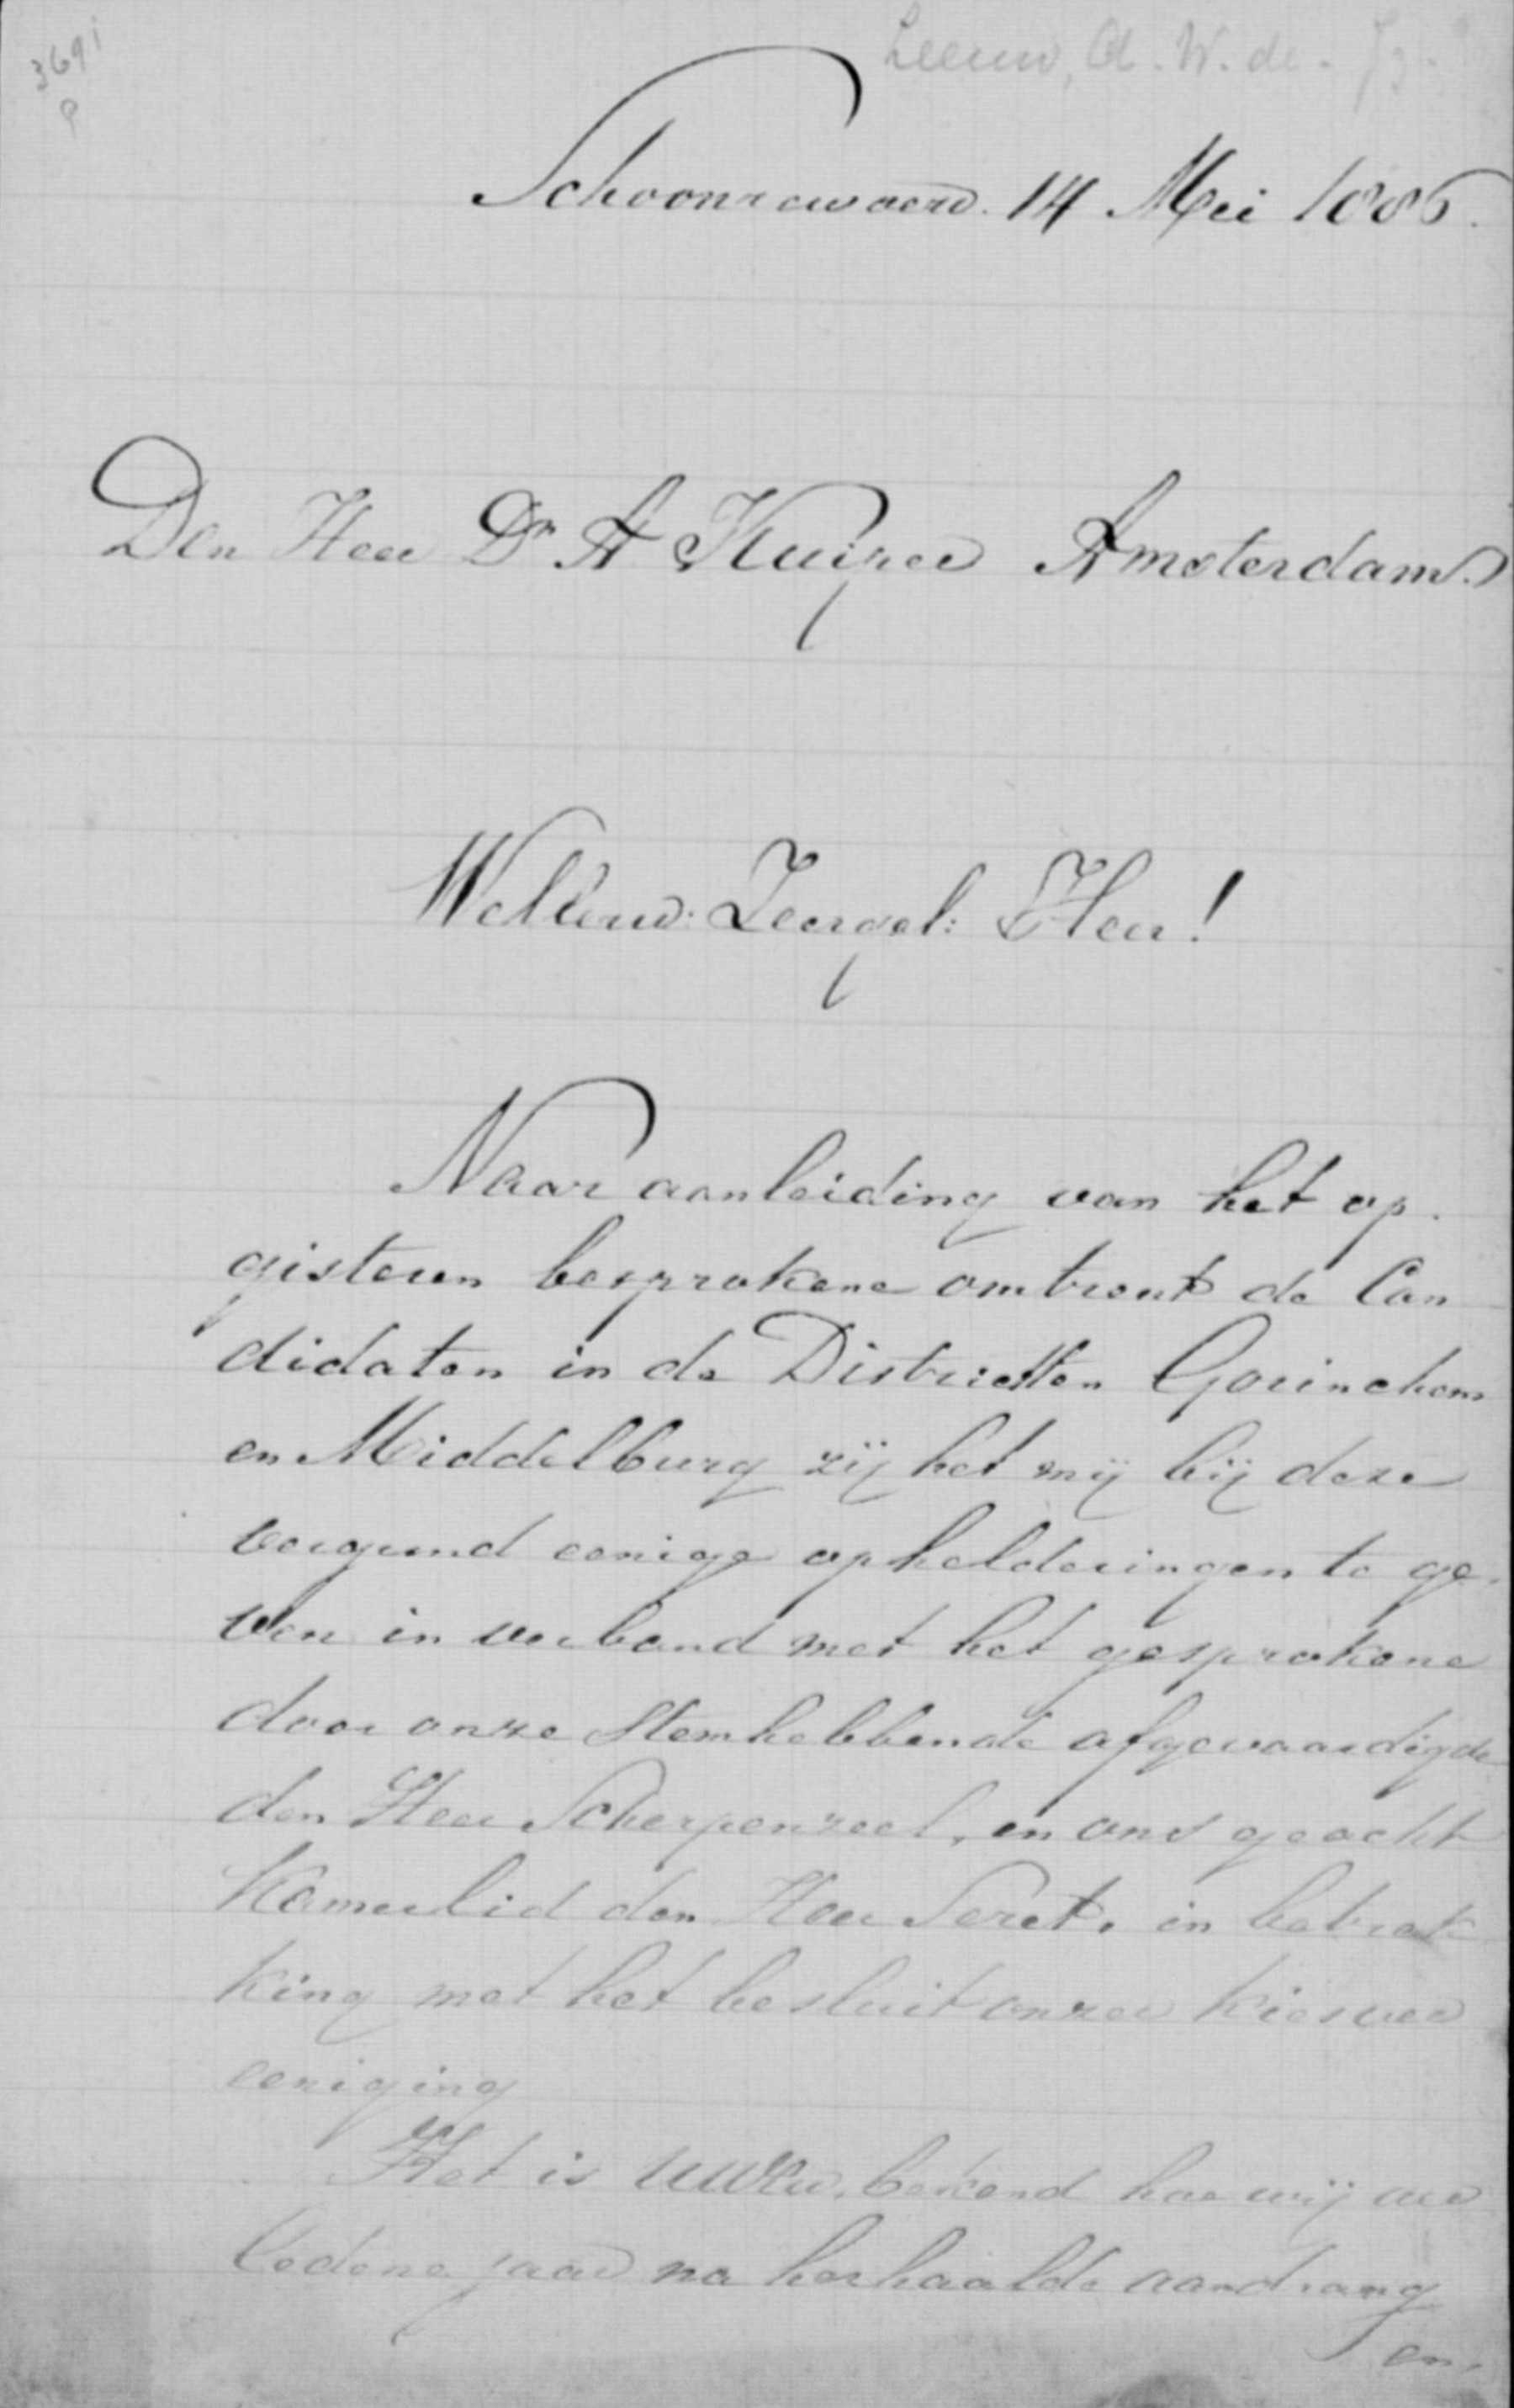 3691
Leeuw, A. W. de. Jz.
Schoonrewoerd. 14 Mei 1886.
Den Heer Dr A Kuiper Amsterdam.
WelEerw: Zeergel: Heer!
Naar aanleiding van het op
gisteren besprokene omtrent de Can
didaten in de Districten Gorinchem
en Middelburg zij het mij bij deze
vergund eenige ophelderingen te ge.
ven in verband met het gesprokene
door onze Stemhebbende afgevaardigde
den Heer Scherpenzeel, en ons geacht
Kamerlid den Heer Seret. in betrek
king met het besluit onzer Kiesver
eeniging
Het is UWEw. bekend hoe wij ver
ledene jaar na herhaalde aandrang
en.